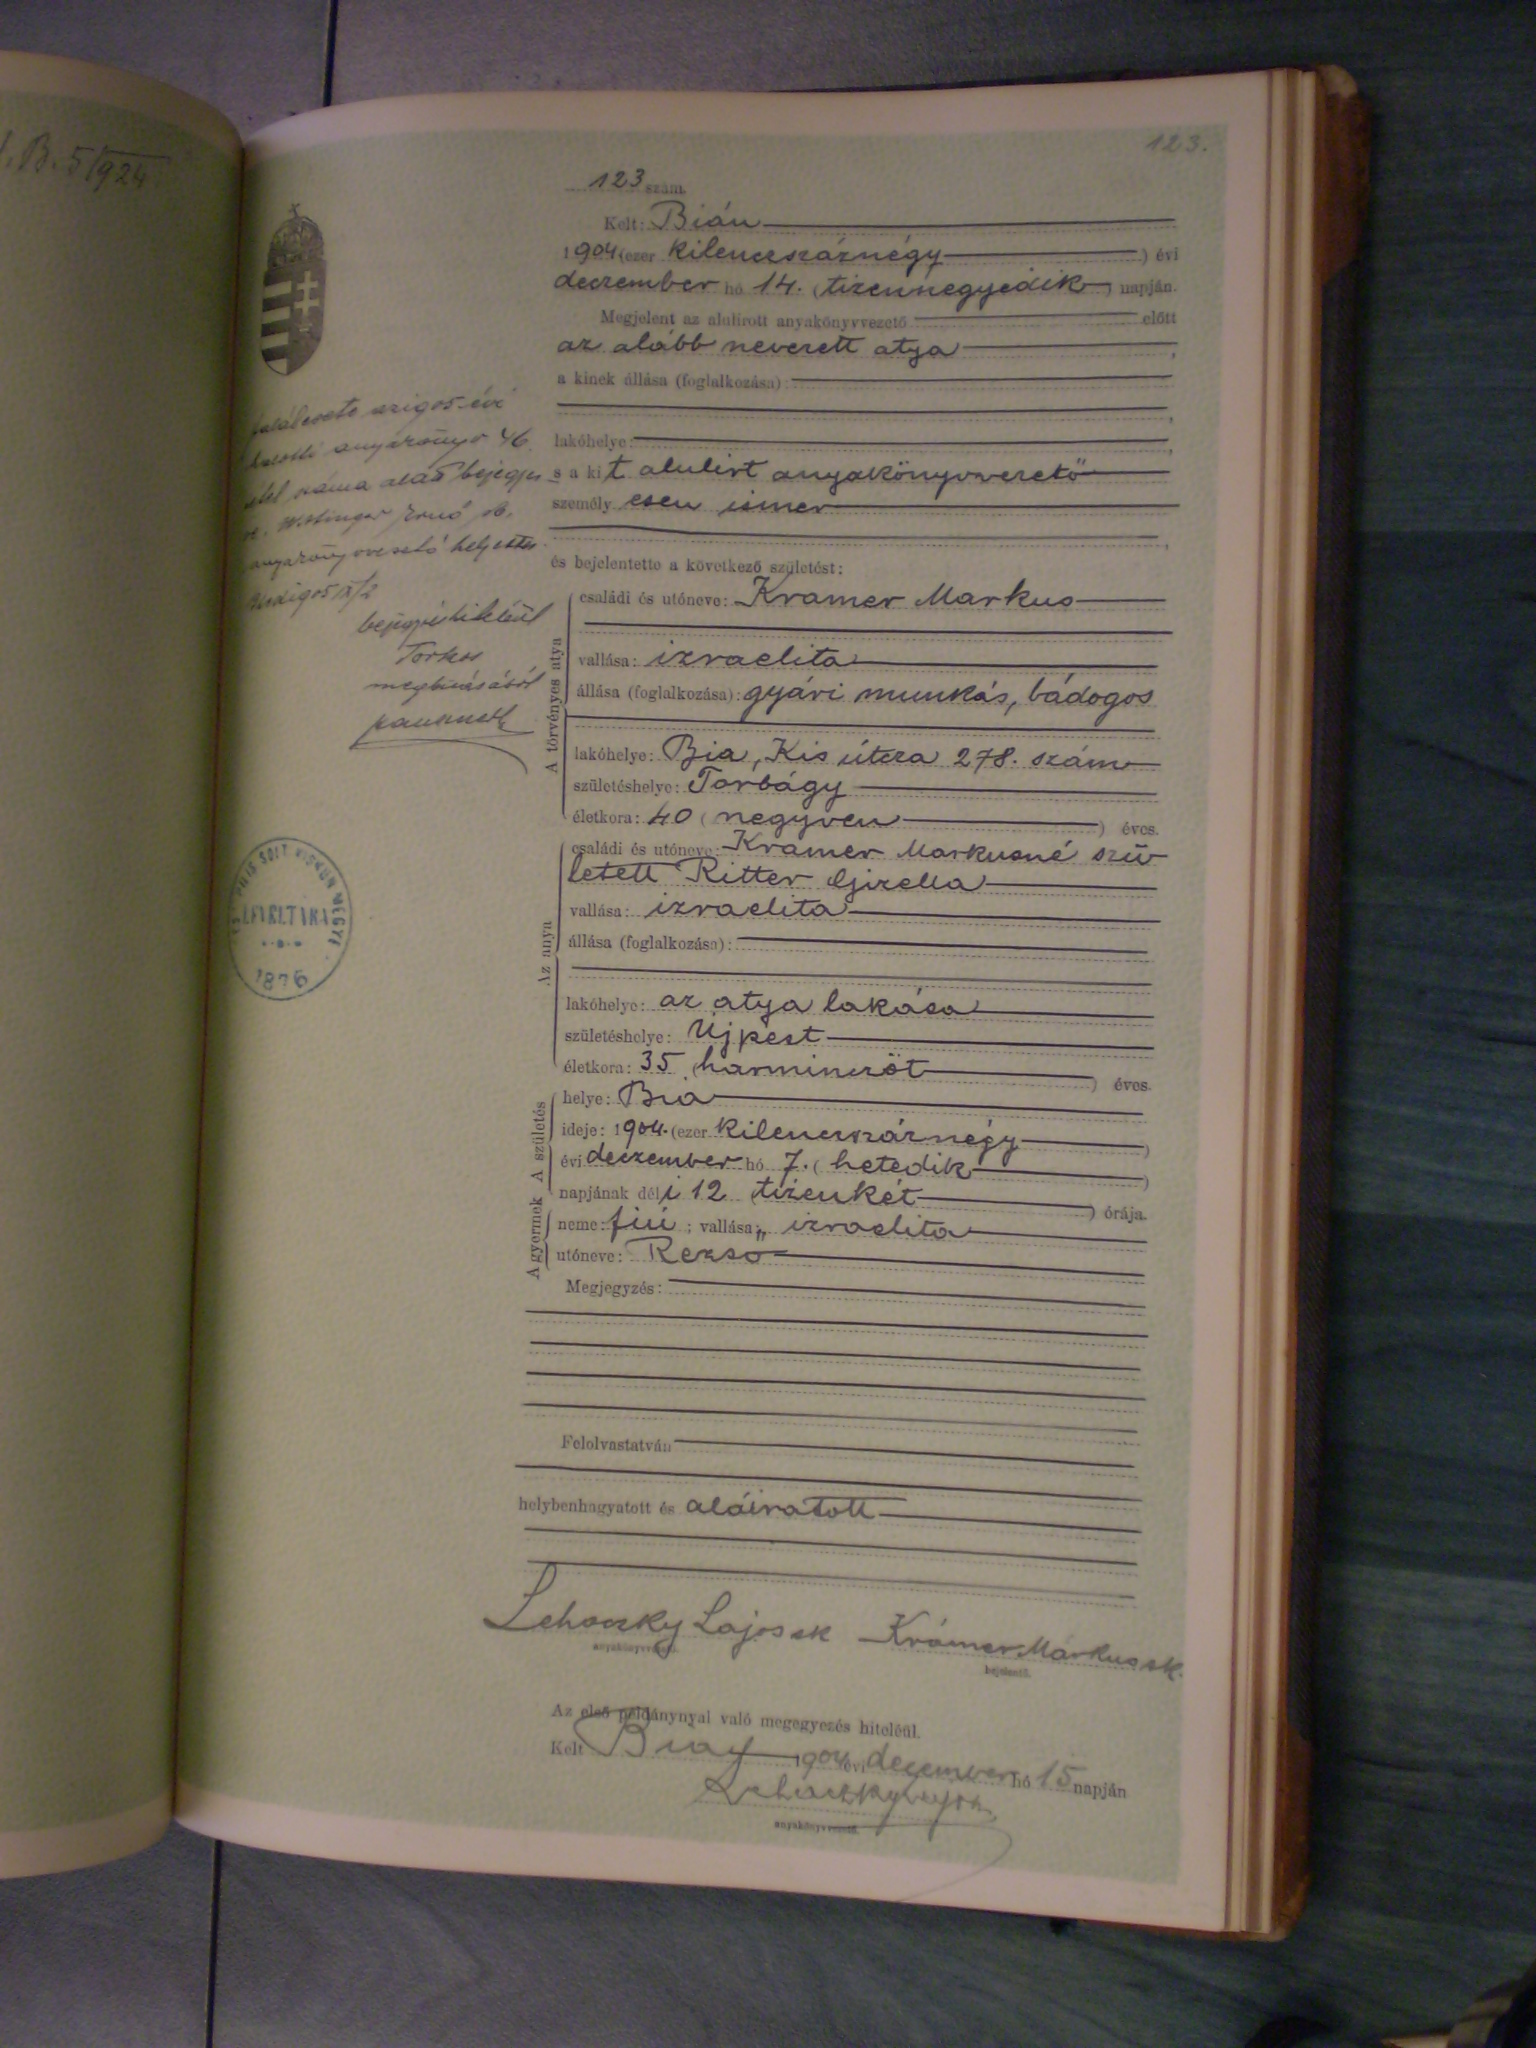 B. 5/924
123.
123 szám.
Kelt: Bián
1904 (ezer kilenczszáznégy) évi
deczember hó 14. (tizennegyedik) napján.
Megjelent az alulirott anyakönyvvezető előtt
az alább nevezett atya,
a kinek állása (foglalkozása):
lakóhelye:
s a kit alulirt anyakönyvvezető
személyesen ismer
és bejelentette a következő születést:
A törvényes atya
családi és utóneve: Kramer Markus
vallása: izraelita
állása (foglalkozása): gyári munkás, bádogos
lakóhelye: Bia, Kis útcza 278. szám
születéshelye: Torbágy
életkora: 40 (negyven) éves.
Az anya
családi és utóneve: Kramer Markusné szü
letett Ritter Gizella
vallása: izraelita
állása (foglalkozása):
lakóhelye: az atya lakása
születéshelye: Újpest
életkora: 35 (harminczöt) éves.
A születés
helye: Bia
ideje: 1904. (ezer kilenczszáznégy)
évi deczember hó 7. (hetedik)
napjának déli 12 (tizenkét) órája.
A gyermek
neme: fiú; vallása: izraelita
utóneve: Rezső
Megjegyzés:
Felolvastatván
helybenhagyatott és aláiratott
Lehoczky Lajos sk Krámer Markus sk.
anyakönyvvezető. bejelentő.
Az első példánynyal való megegyezés hiteléül.
Kelt Bián 1904 évi deczember hó 15 napján
Lehoczky Lajos
anyakönyvvezető.
anyakönyv 46.
száma alatt bejegyez
anyakönyvvezető helyettes
bejegyzés hiteléül
Torkos
megbizásából
PEST PILIS SOLT KISKUN MEGYE
LEVÉLTÁRA
1876